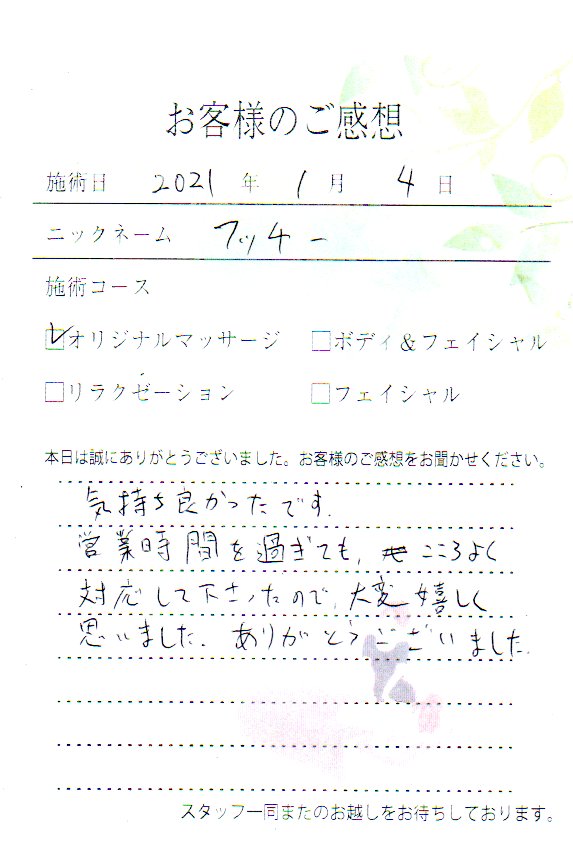 お客様のご感想
施術日 2021 年 1 月 4 日
ニックネーム フッチー
施術コース
☑オリジナルマッサージ □ボディ&フェイシャル
□リラクゼーション □フェイシャル
本日は誠にありがとうございました。お客様のご感想をお聞かせください。
気持ち良かったです.
営業時間を過ぎても, こころよく
対応して下さったので, 大変嬉しく
思いました. ありがとうございました.
スタッフ一同またのお越しをお待ちしております。